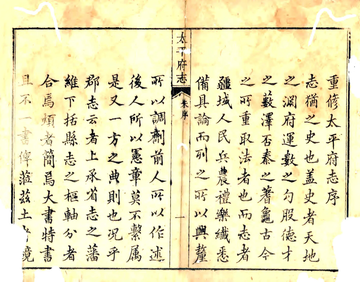 重修太平府志序
志猶之史也蓋史者天地
之淵府運數之勺股德才
之藪澤否泰之蓍龜古今
之所重取法者也而志者
疆域人民兵農禮樂纖悉
備具論而列之所以興釐
太平府志
朱序
一
所以調劑前人所以作述
後人所以憲章莫不繫屬
是又一方之典則也況乎
郡志云者上承省志之藩
維下括縣志之樞軸分者
合焉煩者簡焉大書特書
且不書俾蒞茲土者